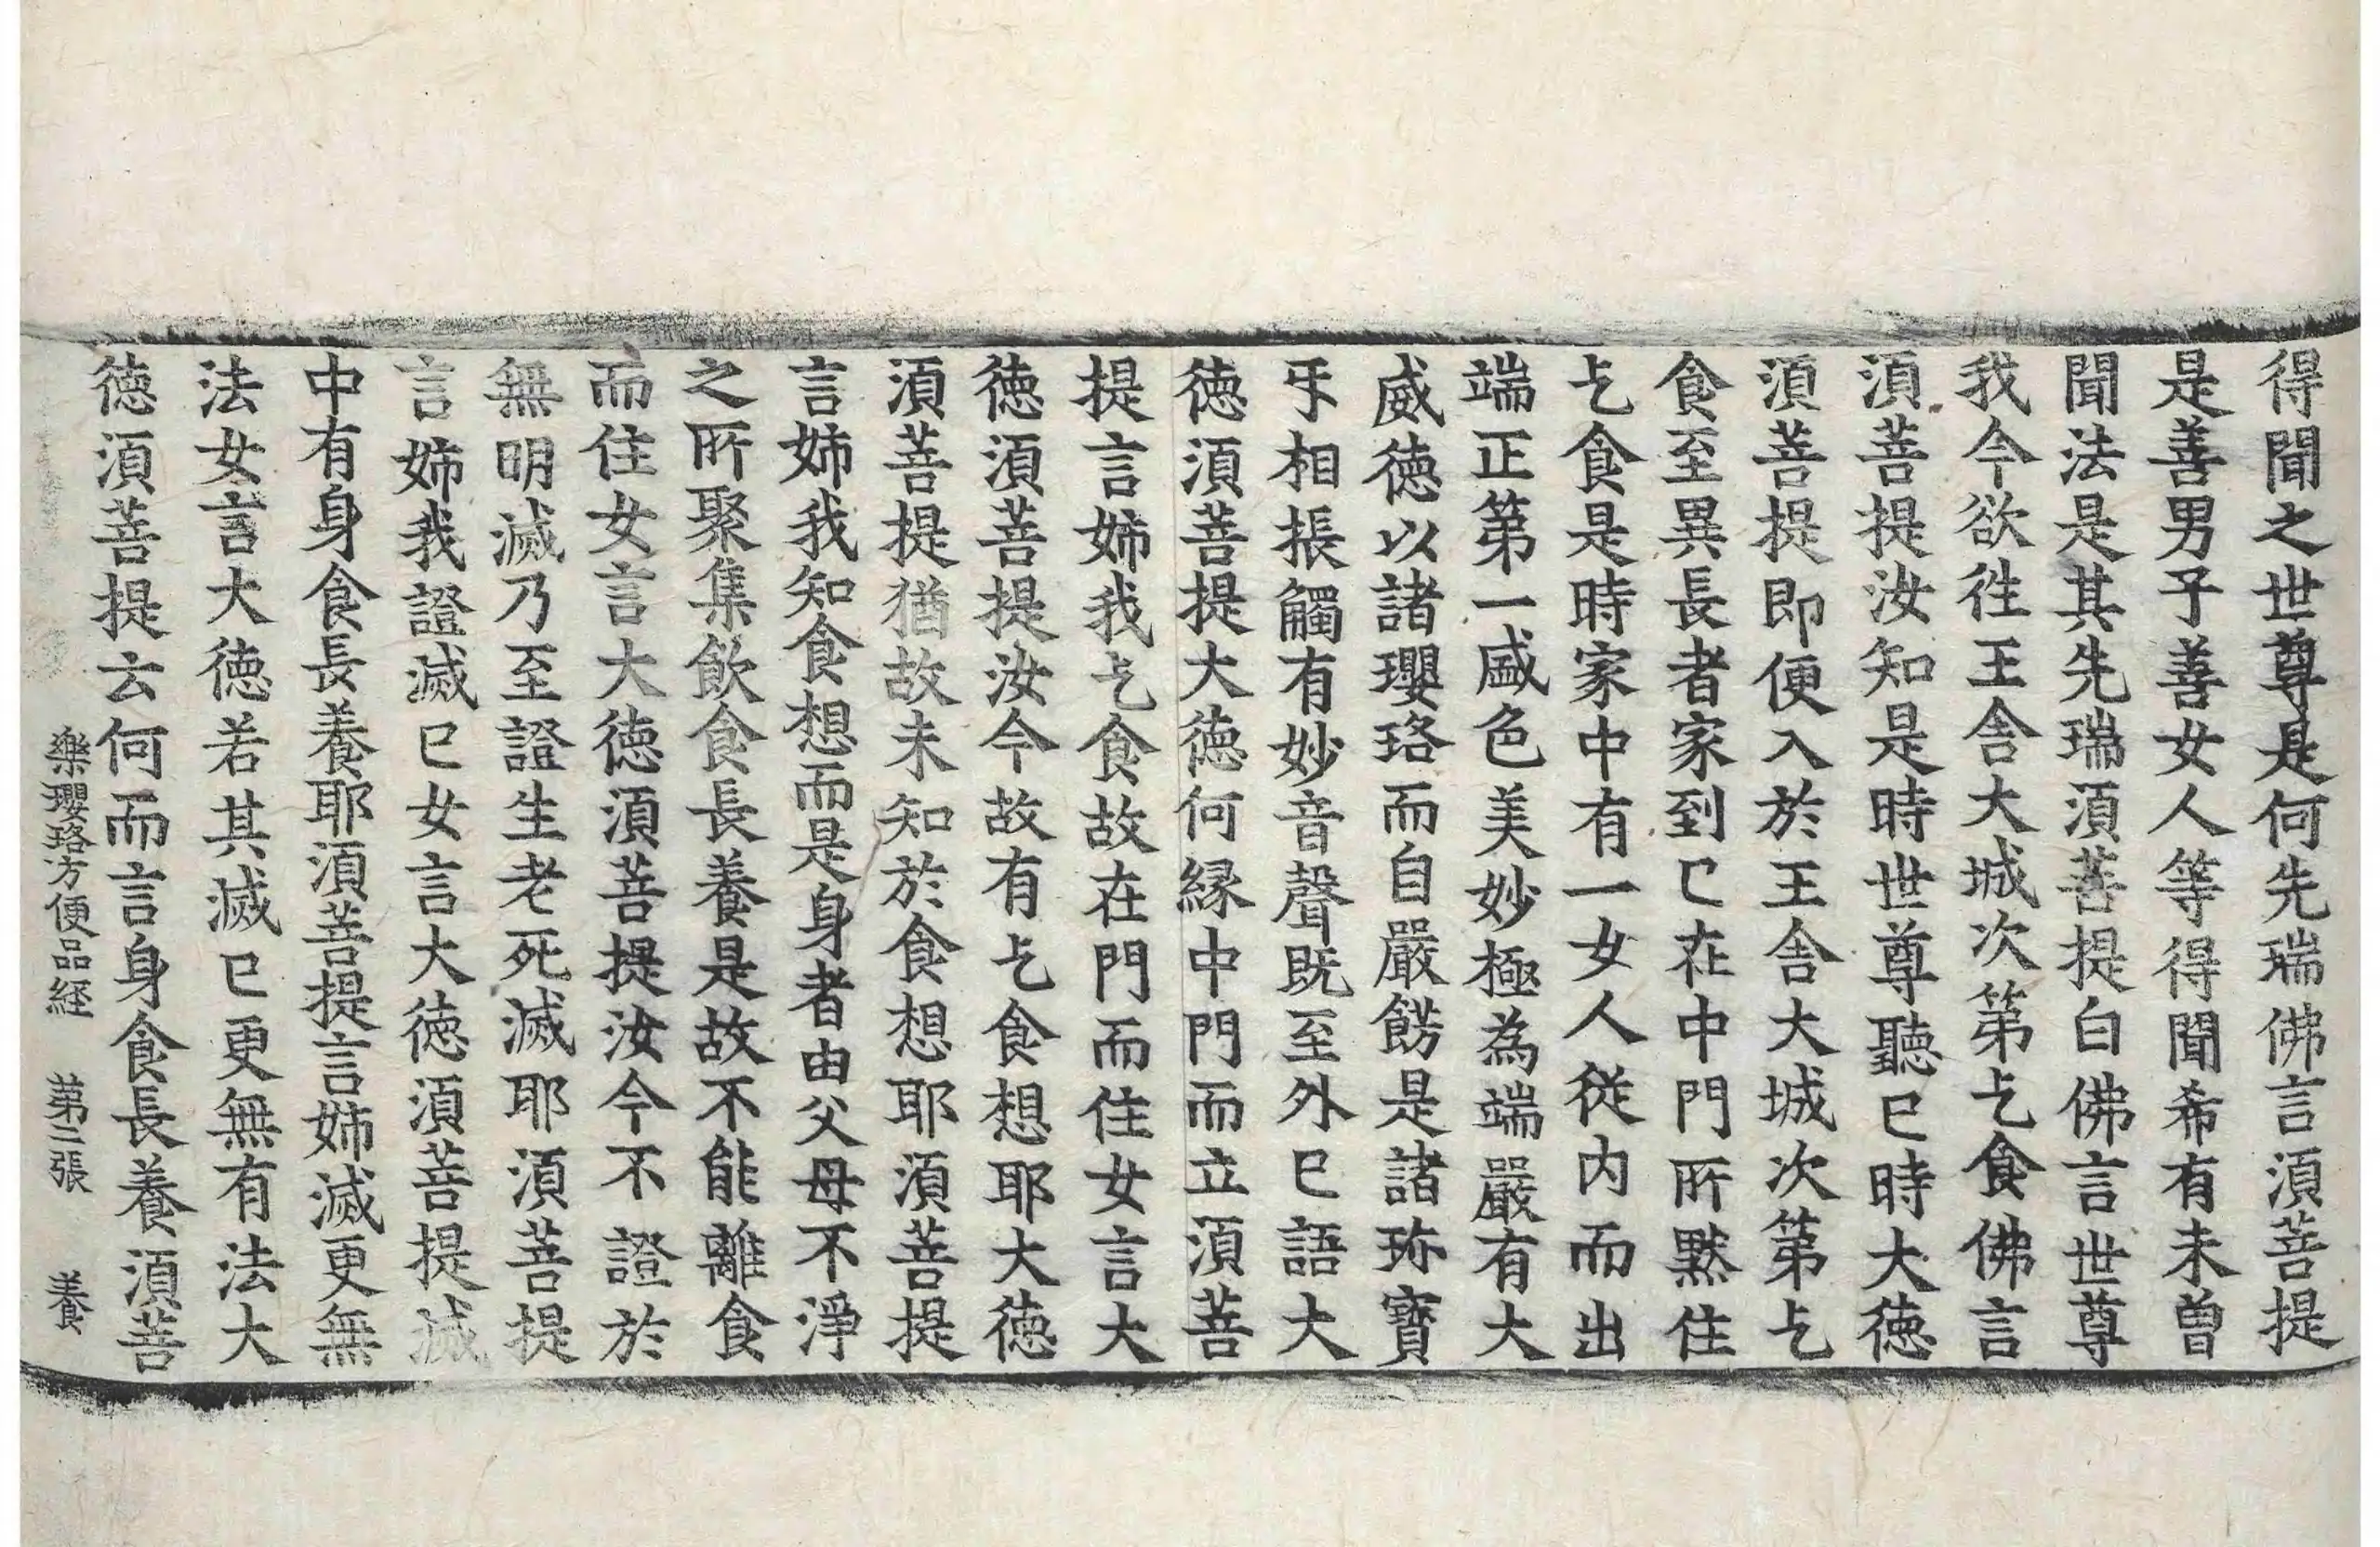 得聞之世尊是何先瑞佛言湏菩提
是善男子善女人等得聞希有未曽
聞法是其先瑞湏菩提白佛言世尊
我今欲徃王舎大城次第乞食佛言
湏菩提汝知是時世尊聽已時大徳
湏菩提即便入於王舎大城次第乞
食至異長者家到已在中門所黙住
乞食是時家中有一女人従内而出
端正第一盛色美妙極為端嚴有大
威徳以諸瓔珞而自嚴餝是諸珎寳
㸦相振觸有妙音聲既至外已語大
徳湏菩提大徳何縁中門而立湏菩
提言姊我乞食故在門而住女言大
徳湏菩提汝今故有乞食想耶大徳
湏菩提猶故未知於食想耶湏菩提
言姊我知食想而是身者由父母不淨
之所聚集飲食長養是故不能離食
而住女言大徳湏菩提汝今不證於
無明滅乃至證生老死滅耶湏菩提
言姊我證滅已女言大徳湏菩提滅
中有身食長養耶湏菩提言姊滅更無
法女言大徳若其滅已更無有法大
徳湏菩提云何而言身食長養湏菩
樂瓔珞方便品経 第二張 養